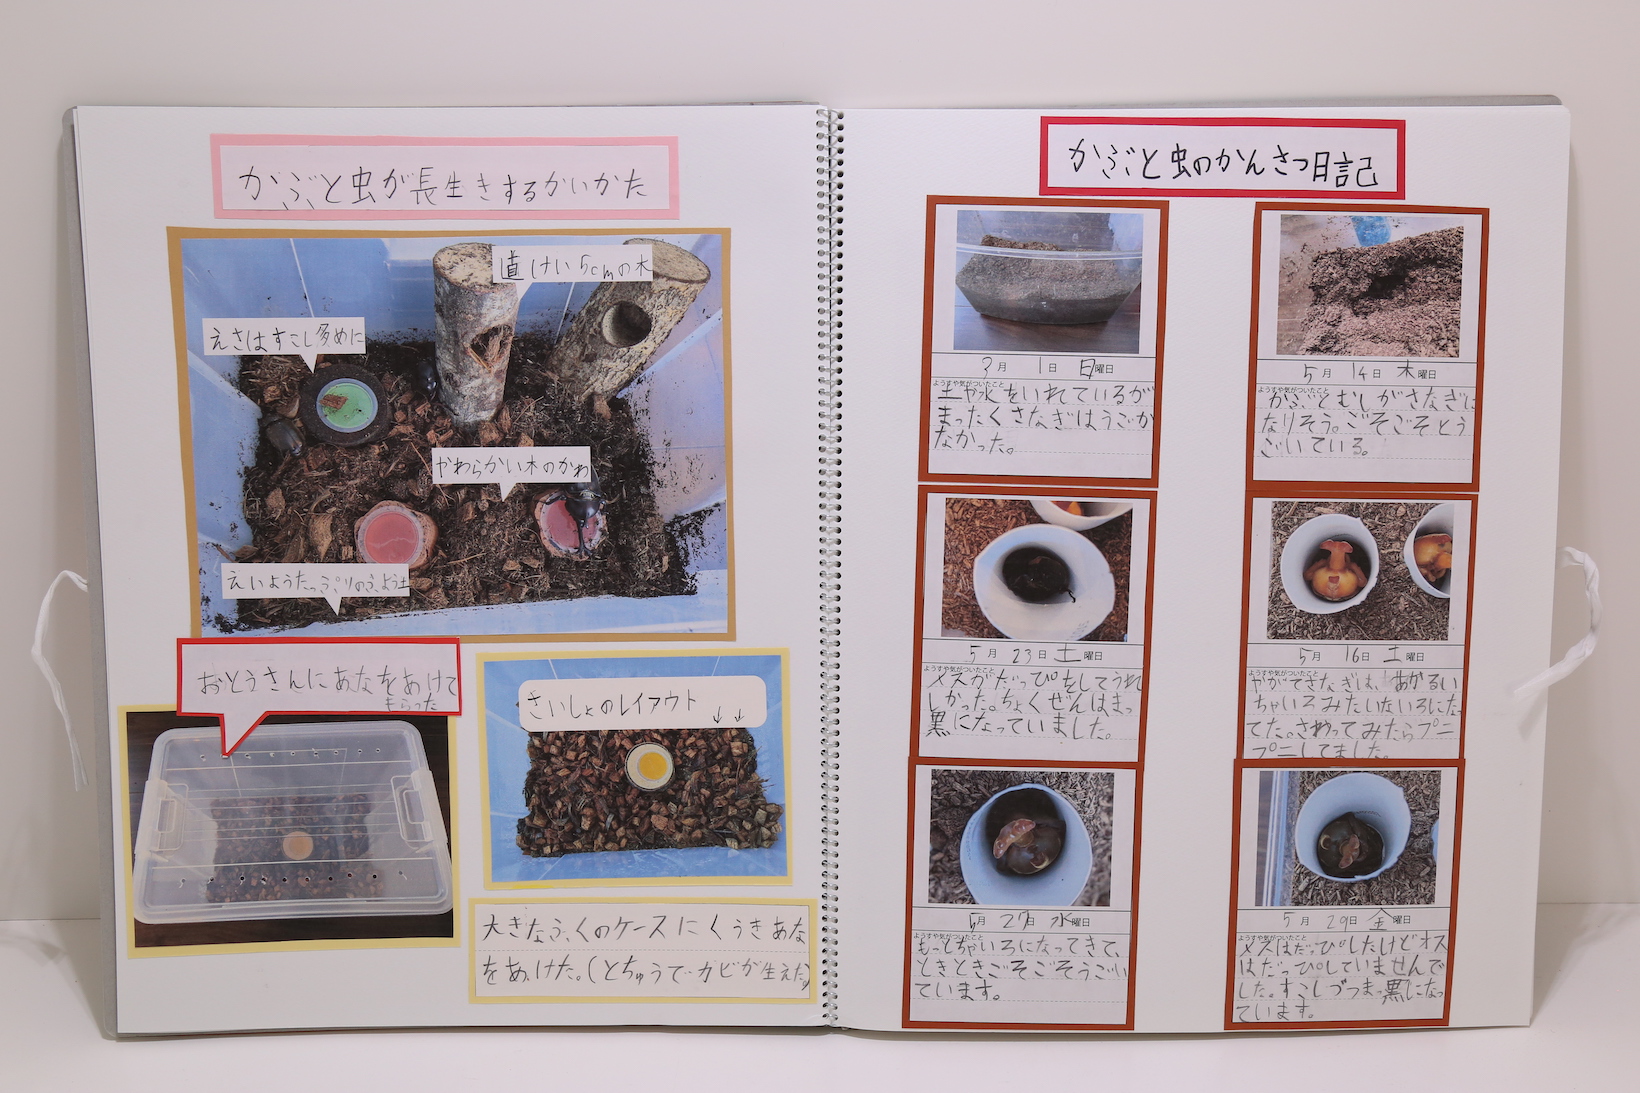 かぶと虫が長生きするかいかた
道けい5cmの木
えさはすこし多めに
やわらかい木のかわ
えいようたっぷりのふよう土
おとうさんにあなをあけて
もらった
さいしょのレイアウト
↓↓
大きなふくのケースにくうきあな
をあけた。(とちゅうでカビが生えた。)
かぶと虫のかんさつ日記
3月1日日曜日
ようすや気がついたこと
土や水をいれているが
まったくさなぎはうごか
なかった。
5月14日木曜日
ようすや気がついたこと
かぶとむしがさなぎに
なりそう。ごそごそとう
ごいている。
5月23日土曜日
ようすや気がついたこと
メスがだっぴをしてうれ
しかった。ちょくぜんはまっ
黒になっていました。
5月16日土曜日
ようすや気がついたこと
やがてさなぎは、あかるい
ちゃいろみたいないろになっ
てた。さわってみたらプニ
プニしてました。
5月27日水曜日
ようすや気がついたこと
もっとちゃいろになってきて、
ときときごそごそうごい
ています。
5月29日金曜日
ようすや気がついたこと
メスはだっぴしたけどオス
はだっぴしていませんで
した。すこしづつまっ黒になっ
ています。